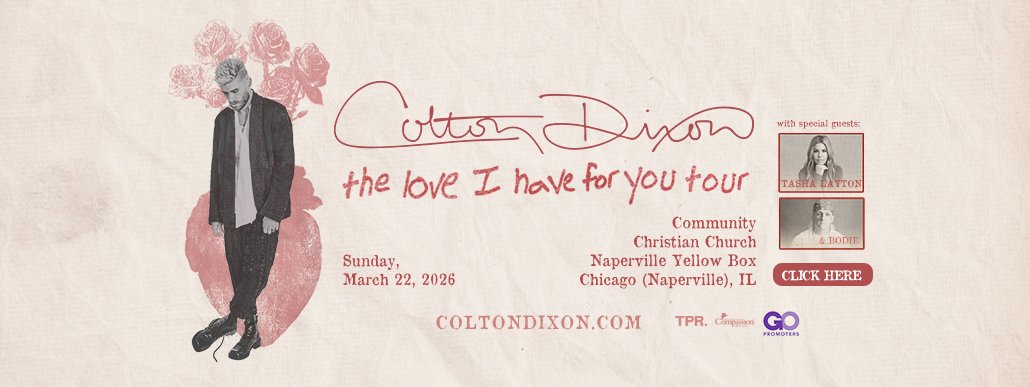 Colton Dixon
the love I have for you tour
Sunday,
March 22, 2026
Community
Christian Church
Naperville Yellow Box
Chicago (Naperville), IL
with special guests:
TASHA LAYTON
& BODIE
CLICK HERE
COLTONDIXON.COM
TPR.
Compassion
GO
PROMOTERS